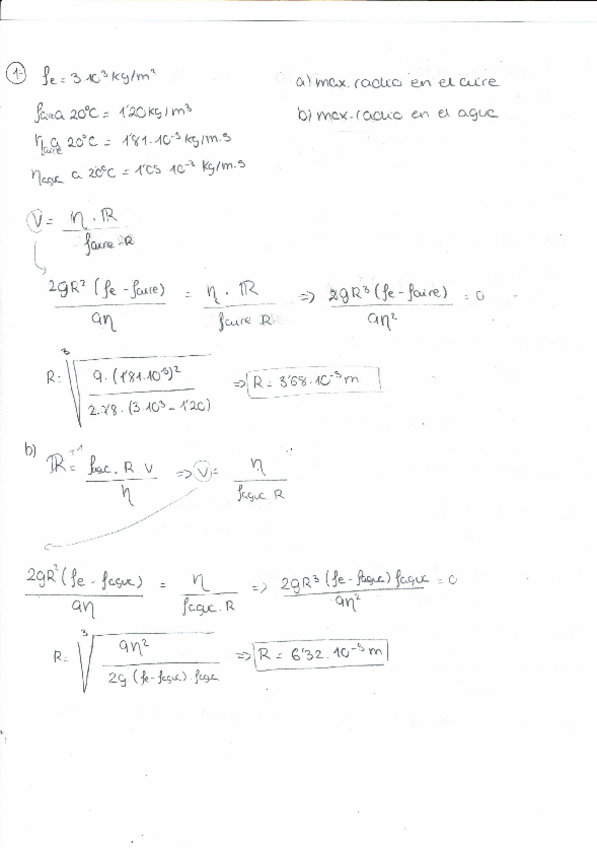 1- ρe = 3 10³ kg/m³
a) max. radio en el aire
ρaire a 20ºC = 1'20 kg/m³
b) max. radio en el agua
η aire a 20ºC = 1'81·10⁻⁵ kg/m·s
ηagua a 20ºC = 1'05 10⁻³ kg/m·s
V = η · ℝ / ρaire R
2gR² (ρe - ρaire) / 9η = η · ℝ / ρaire R => 2gR³ (ρe - ρaire) / 9η² = 0
R = ∛(9·(1'81·10⁻⁵)² / 2·9'8·(3·10³ - 1'20)) => R = 3'68·10⁻⁵ m
b) ℝ = ρac. R v / η => V = η / ρagua R
2gR² (ρe - ρagua) / 9η = η / ρagua · R => 2gR³ (ρe - ρagua) ρagua / 9η² = 0
R = ∛(9η² / 2g·(ρe - ρagua)·ρagua) => R = 6'32·10⁻⁵ m